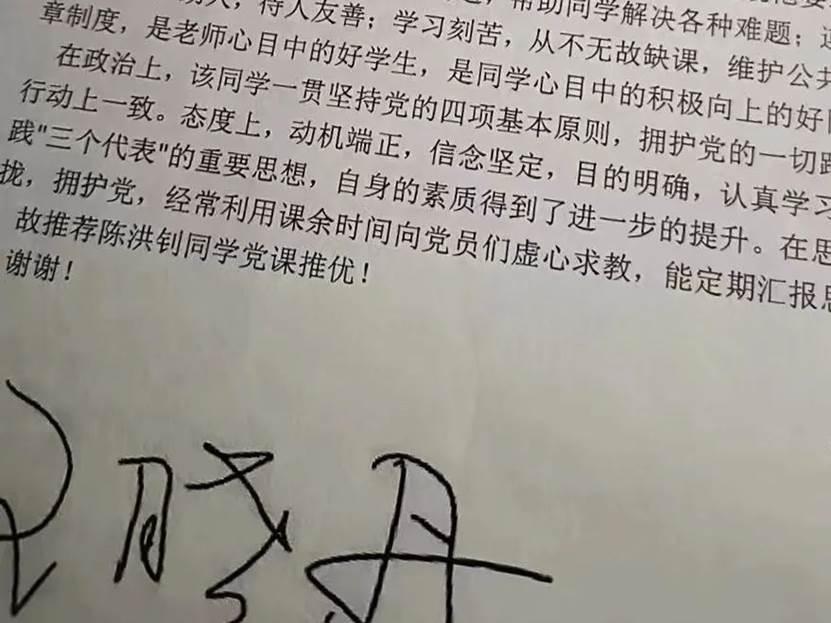 助人，待人友善；学习刻苦，从不无故缺课，维护公共
帮助同学解决各种难题；
章制度，是老师心目中的好学生，是同学心目中的积极向上的好
在政治上，该同学一贯坚持党的四项基本原则，拥护党的一切路
行动上一致。态度上，动机端正，信念坚定，目的明确，认真学习
践"三个代表"的重要思想，自身的素质得到了进一步的提升。在思
拢，拥护党，经常利用课余时间向党员们虚心求教，能定期汇报思
故推荐陈洪钊同学党课推优！
谢谢！
晓丹